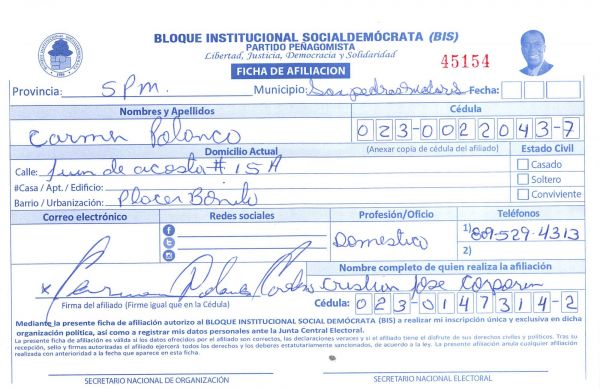 BLOQUE INSTITUCIONAL SOCIALDEMÓCRATA (BIS)
PARTIDO PEÑAGOMISTA
Libertad, Justicia, Democracia y Solidaridad
45154
FICHA DE AFILIACION
Provincia: SPM. Municipio: San pedro Fecha:
Nombres y Apellidos Cédula
Carmen Polanco 023-0022043-7
Domicilio Actual (Anexar copia de cédula del afiliado) Estado Civil
Calle: Juan de acosta # 15A Casado
#Casa / Apt. / Edificio: Soltero
Barrio / Urbanización: Placer Bonito Conviviente
Correo electrónico Redes sociales Profesión/Oficio Teléfonos
Domestico 1) 809-529-4313
2)
Nombre completo de quien realiza la afiliación
x Carmen Polanco Cordero Cristian Jose Corporan
Firma del afiliado (Firme igual que en la Cédula) Cédula: 023-0147314-2
Mediante la presente ficha de afiliación autorizo al BLOQUE INSTITUCIONAL SOCIAL DEMÓCRATA (BIS) a realizar mi inscripción única y exclusiva en dicha
organización política, así como a registrar mis datos personales ante la Junta Central Electoral.
La presente ficha de afiliación es válida si los datos ofrecidos por el afiliado son correctos, las declaraciones veraces y si el afiliado tiene el disfrute de sus derechos civiles y políticos. Tras su
recepción, sello y firmas autorizadas el afiliado ejercerá todos los derechos y los deberes estatutariamente sancionados, de acuerdo a la ley. La presente afiliación anula cualquier afiliación
realizada con anterioridad a la fecha que aparece en esta ficha.
SECRETARIO NACIONAL DE ORGANIZACIÓN SECRETARIO NACIONAL ELECTORAL